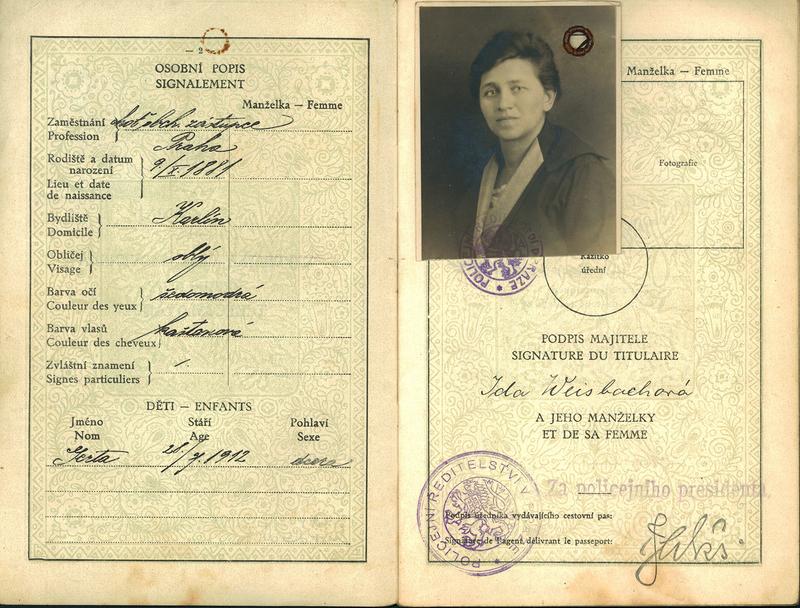 — 2
OSOBNÍ POPIS
SIGNALEMENT
Manželka — Femme
Zaměstnání
Profession
obch. zástupce
Praha
Rodiště a datum
narození
9/X. 1881
Lieu et date
de naissance
Bydliště
Domicile
Karlín
Obličej
Visage
oblý
Barva očí
Couleur des yeux
šedomodrá
Barva vlasů
Couleur des cheveux
kaštanová
Zvláštní znamení
Signes particuliers
DĚTI — ENFANTS
Jméno Stáří Pohlaví
Nom Age Sexe
1912
Manželka — Femme
Fotografie
POLICEJNÍ PRAZE
Razítko
úřední
PODPIS MAJITELE
SIGNATURE DU TITULAIRE
Ida Weisbachová
A JEHO MANŽELKY
ET DE SA FEMME
POLICEJNÍ ŘEDITELSTVÍ V
Za policejního presidenta
Podpis úředníka vydávajícího cestovní pas:
Signature de l'agent, délivrant le passeport: